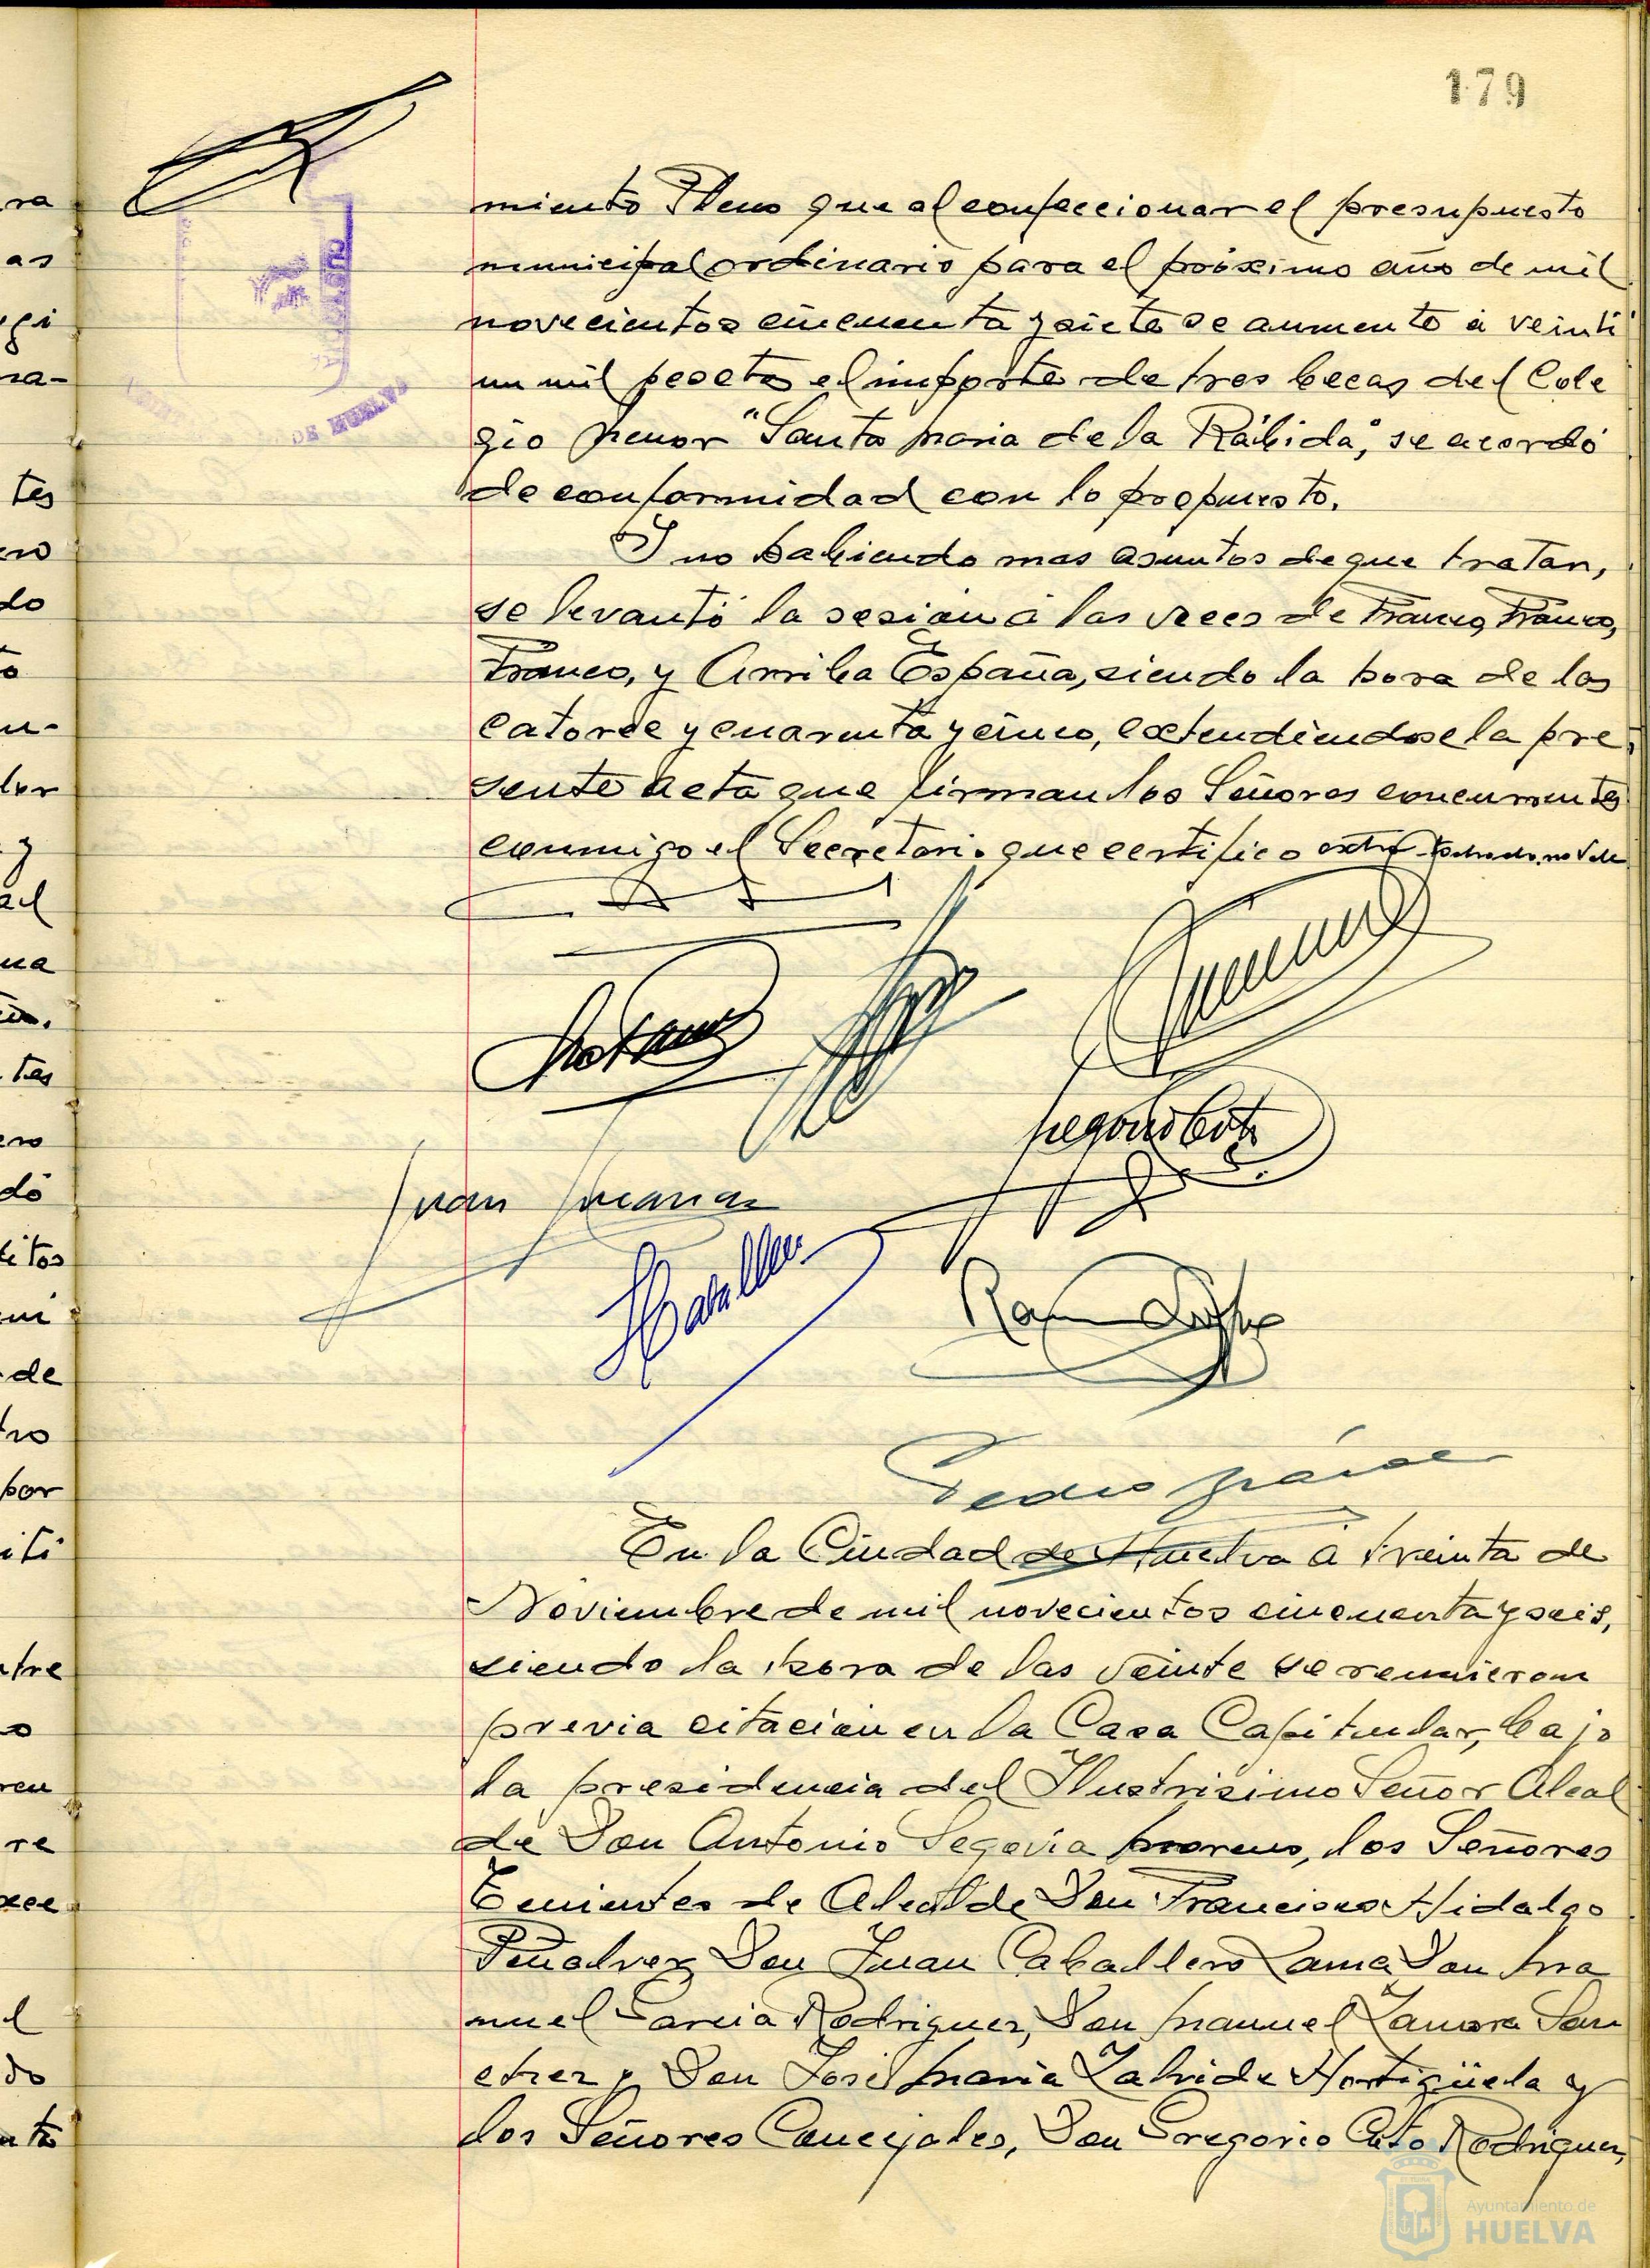 179
miento Pleno que al confeccionar el presupuesto
municipal ordinario para el próximo año de mil
novecientos cincuenta y siete se aumente a veinti
un mil pesetas el importe de tres becas del Cole
gio Menor "Santa Maria de la Rábida", se acordó
de conformidad con lo propuesto.
Y no habiendo mas asuntos de que tratar,
se levantó la sesión a las voces de Franco, Franco,
Franco, y Arriba España, siendo la hora de las
catorce y cuarenta y cinco, extendiendose la pre
sente acta que firman los Señores concurrentes
conmigo el Secretario que certifico no vale
Gregorio Coto
Juan
JCaballero
Ramon
Pedro
En la Ciudad de Huelva a treinta de
Noviembre de mil novecientos cincuenta y seis,
siendo la hora de las veinte se reunieron
previa citacion en la Casa Capitular, bajo
la presidencia del Ilustrisimo Señor Alcal
de Don Antonio Segovia Moreno, los Señores
Tenientes de Alcalde Don Francisco Hidalgo
Peñalver, Don Juan Caballero Lama, Don Ma
nuel Garcia Rodriguez, Don Manuel Zamora San
chez y Don José Maria Zalvide Hortigüela y
los Señores Concejales, Don Gregorio Coto Rodriguez,
DE HUELVA
ra
as
gi
ra-
tes
do
u-
lor
y
ua
tes
dó
de
por
tre
ren
re
l
do
Ayuntamiento de
HUELVA